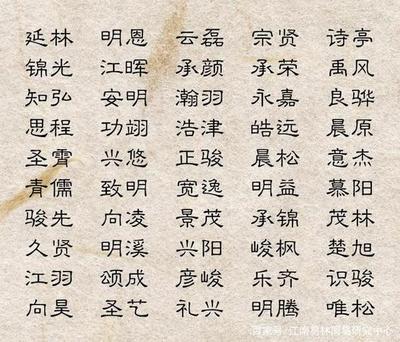 延林 明恩 云磊 宗贤 诗亭
锦光 江晖 承颜 承荣 禹风
知弘 安明 瀚羽 永嘉 良骅
思程 功翊 浩津 皓远 晨原
圣霄 兴悠 正骏 晨松 意杰
青儒 致明 宽逸 明益 慕阳
骏先 向凌 景茂 承锦 茂林
久贤 明溪 兴阳 峻枫 楚旭
江羽 颂成 彦峻 乐齐 识骏
向昊 圣艺 礼兴 明腾 唯松